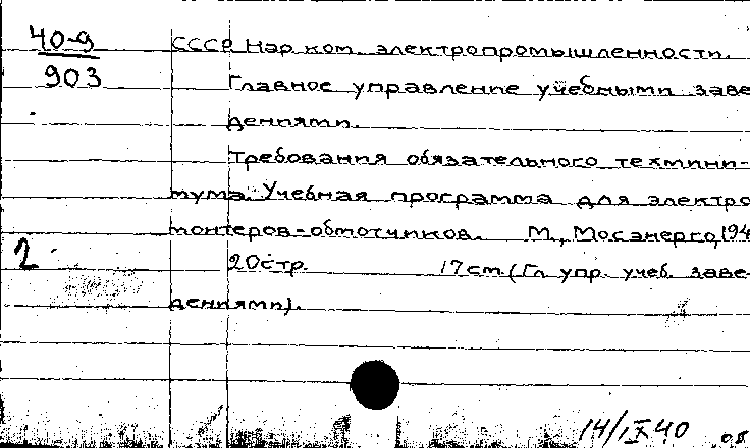 40-9
903
СССР Нар ком. электропромышленности.
Главное управление учебными заве
дениями.
Требования обязательного техмини-
мума. Учебная программа для электро
монтеров-обмотчиков. М., Мосэнерго, 194
2
20стр. 17см (Гл упр. учеб. заве-
дениями).
14/IX 40